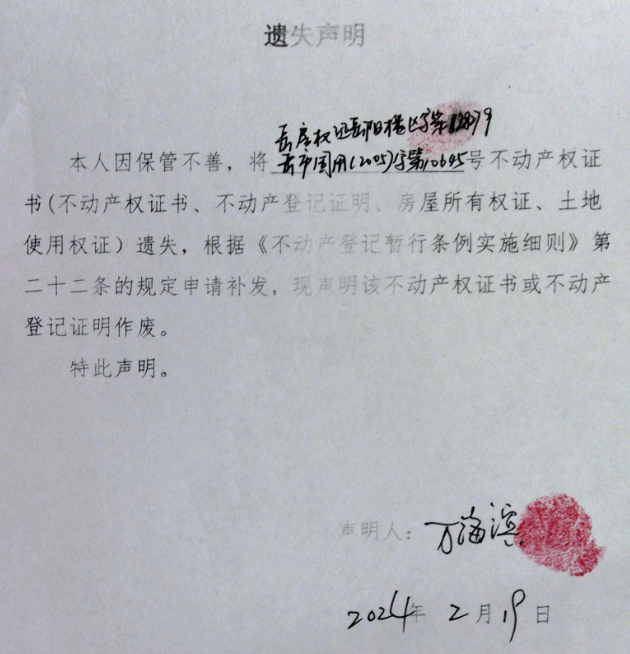 遗失声明
岳房权证岳阳楼区字第112879
本人因保管不善，将岳市国用(2005)字第10645号不动产权证
书(不动产权证书、不动产登记证明、房屋所有权证、土地
使用权证）遗失，根据《不动产登记暂行条例实施细则》第
二十二条的规定申请补发，现声明该不动产权证书或不动产
登记证明作废。
特此声明。
声明人：万海滨
2024年2月19日